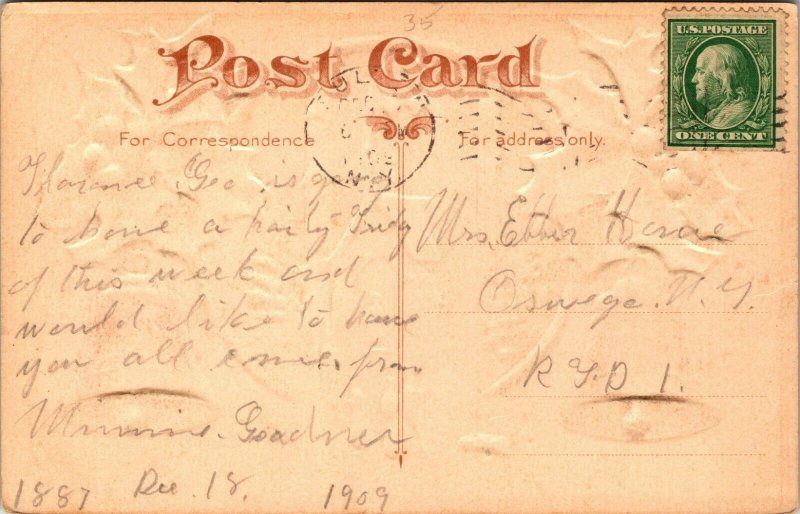 35
Post Card
U.S. POSTAGE
ONE CENT
For Correspondence
For address only.
DEC
N.Y.
Florance Geo is go
to have a party Fridy
of this week and
would like to have
you all come. from
Minnie. Goadner
1887 Dec. 18. 1909
Mrs. Howe
Oswego. N.Y.
R.F.D 1.